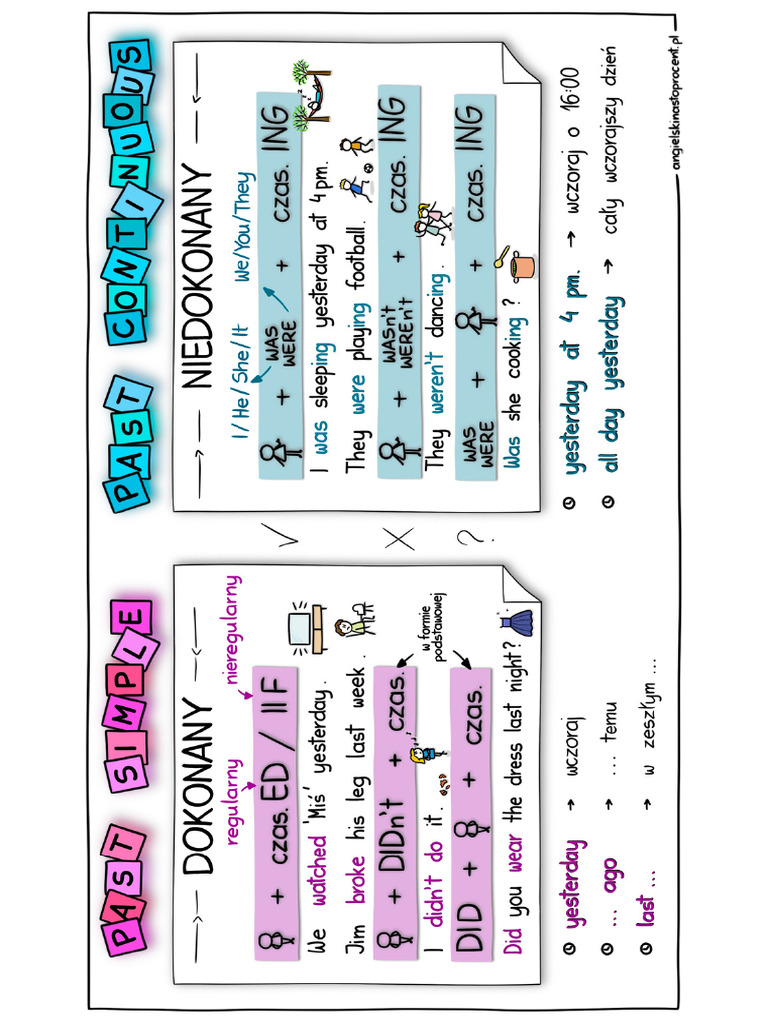 PAST SIMPLE
DOKONANY
regularny nieregularny
+ czas. ED / II F
We watched 'Miś' yesterday.
Jim broke his leg last week.
+ DIDn't + czas.
w formie
podstawowej
I didn't do it.
DID + + czas.
Did you wear the dress last night?
yesterday → wczoraj
... ago → ... temu
last ... → w zeszłym ...
✓
X
?
PAST CONTINUOUS
NIEDOKONANY
I/He/She/It We/You/They
+ WAS
WERE + czas. ING
I was sleeping yesterday at 4 pm.
They were playing football.
+ WASn't
WEREn't + czas. ING
They weren't dancing.
WAS
WERE + + czas. ING
Was she cooking?
yesterday at 4 pm. → wczoraj o 16:00
all day yesterday → cały wczorajszy dzień
angielskinastoprocent.pl